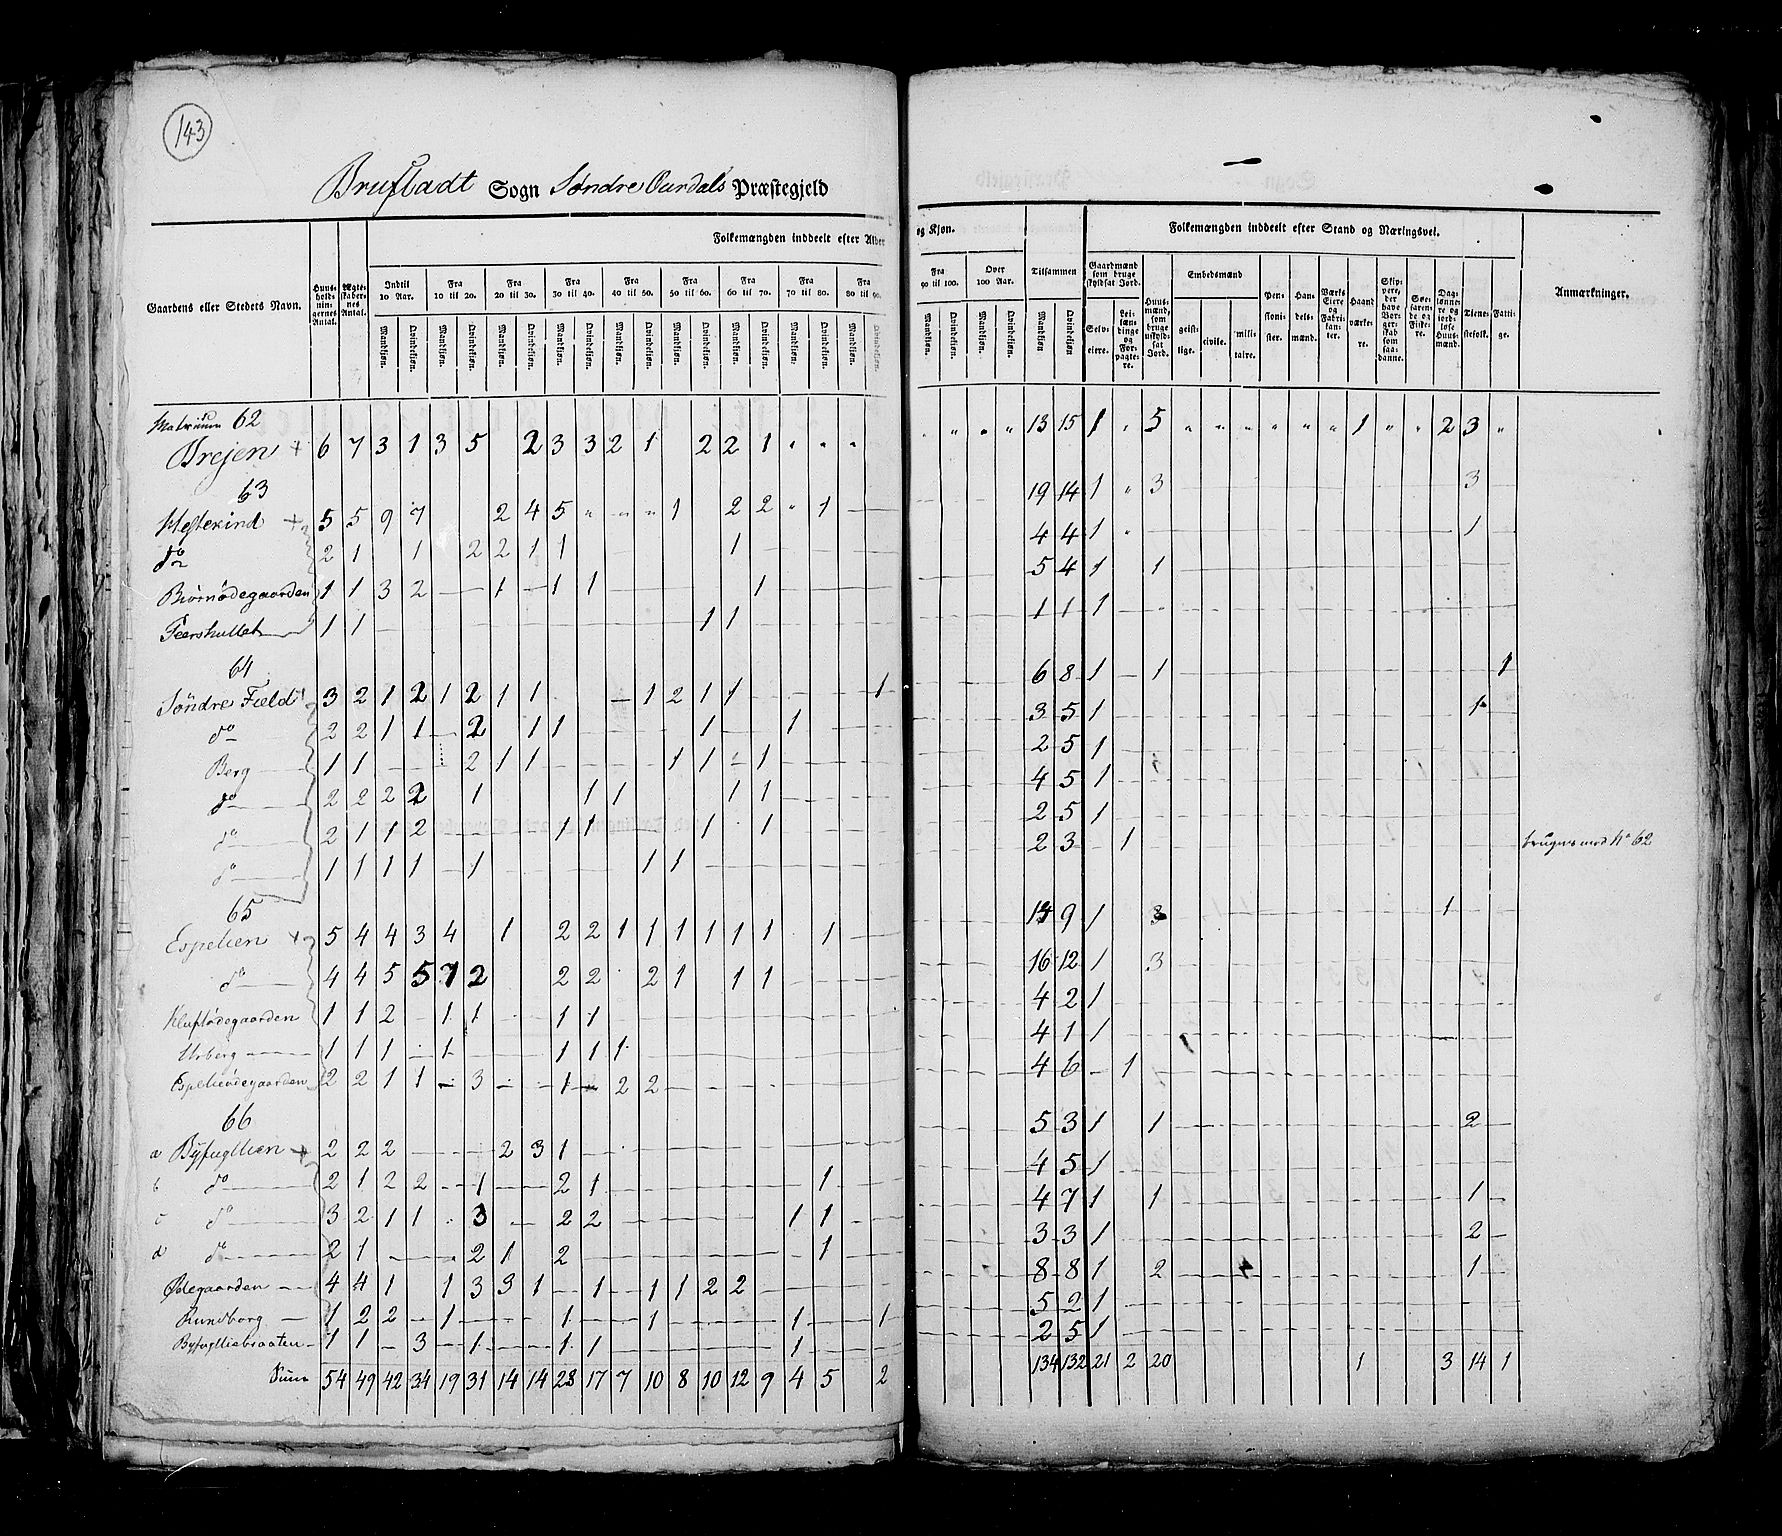 143
Brufladt Sogn Søndre Ourdals Præstegjeld
Folkemængden inddeelt efter Alder og Kjøn. Folkemængden inddeelt efter Stand og Næringsvei.
Gaardens eller Stedets Navn. Huus-holdningernes Antal. Ægteskabernes Antal. Indtil 10 Aar. Fra 10 til 20. Fra 20 til 30. Fra 30 til 40. Fra 40 til 50. Fra 50 til 60. Fra 60 til 70. Fra 70 til 80. Fra 80 til 90. Fra 90 til 100. Over 100 Aar. Tilsammen Gaardmænd som bruge skyldsat Jord. Huusmænd, som bruge uskyldsat Jord. Embedsmænd Pensionister. Handelsmænd. Værks Eiere og Fabrikanter. Haandværkere. Skippere, der have Borgerskab som saadanne. Søefarende og Fiskere. Daglønnere og jordløse Huusmænd. Tjenestefolk. Fattige. Anmærkninger.
Mandkjøn. Qvindekjøn. Selveiere. Leilændinge og Forpagtere. geistlige. civile. militaire.
62
Brejen + 6 7 3 1 3 5 2 3 3 2 1 2 2 1 13 15 1 5 1 2 3
63
Hestekind + 5 5 9 7 2 4 5 1 2 2 1 19 14 1 3 3
do 2 1 1 2 2 1 1 1 4 4 1 1
Biörnödegaarden 1 1 3 2 1 1 1 1 5 4 1 1
1 1 1 1 1 1 1
64
Søndre Fæld 3 2 1 2 1 2 1 1 1 2 1 1 1 6 8 1 1 1
do 2 2 1 1 2 1 1 1 1 3 5 1 1
Berg 1 1 2 1 1 1 1 1 2 5 1
do 2 2 2 2 1 1 1 1 1 4 5 1
do 2 1 1 2 1 1 1 1 2 5 1
do 1 1 1 1 1 1 1 2 3 1 bruges med No 62
65
Espelien + 5 4 4 3 4 1 2 2 1 1 1 1 1 1 1 9 1 3 1
do 4 4 5 5 7 2 2 2 2 1 1 1 16 12 1 3
1 1 2 1 1 1 1 4 2 1
Urberg 1 1 1 1 1 1 1 4 1 1
Espelieödegaarden 2 2 1 1 3 1 2 2 4 6 1
66
a Byfuglien + 2 2 2 2 3 1 5 3 1 1 2
b do 2 1 2 2 1 2 1 1 4 5 1
c do 3 2 1 1 3 2 2 1 1 4 7 1 1 1
d do 2 1 2 1 2 1 3 3 1 2
Ødegaarden 4 4 1 1 3 3 1 1 1 1 2 2 8 8 1 2 1
Rundborg 1 2 2 1 1 1 1 1 5 2 1
Byfugliebraaten 1 1 3 1 1 1 1 2 5 1
Sum 54 49 42 34 19 31 14 14 28 17 7 10 8 10 12 9 4 5 2 134 132 21 2 20 1 3 14 1